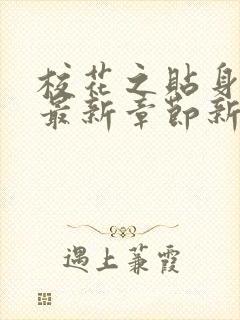 校花之贴身
最新章节新
遇上蒹霞